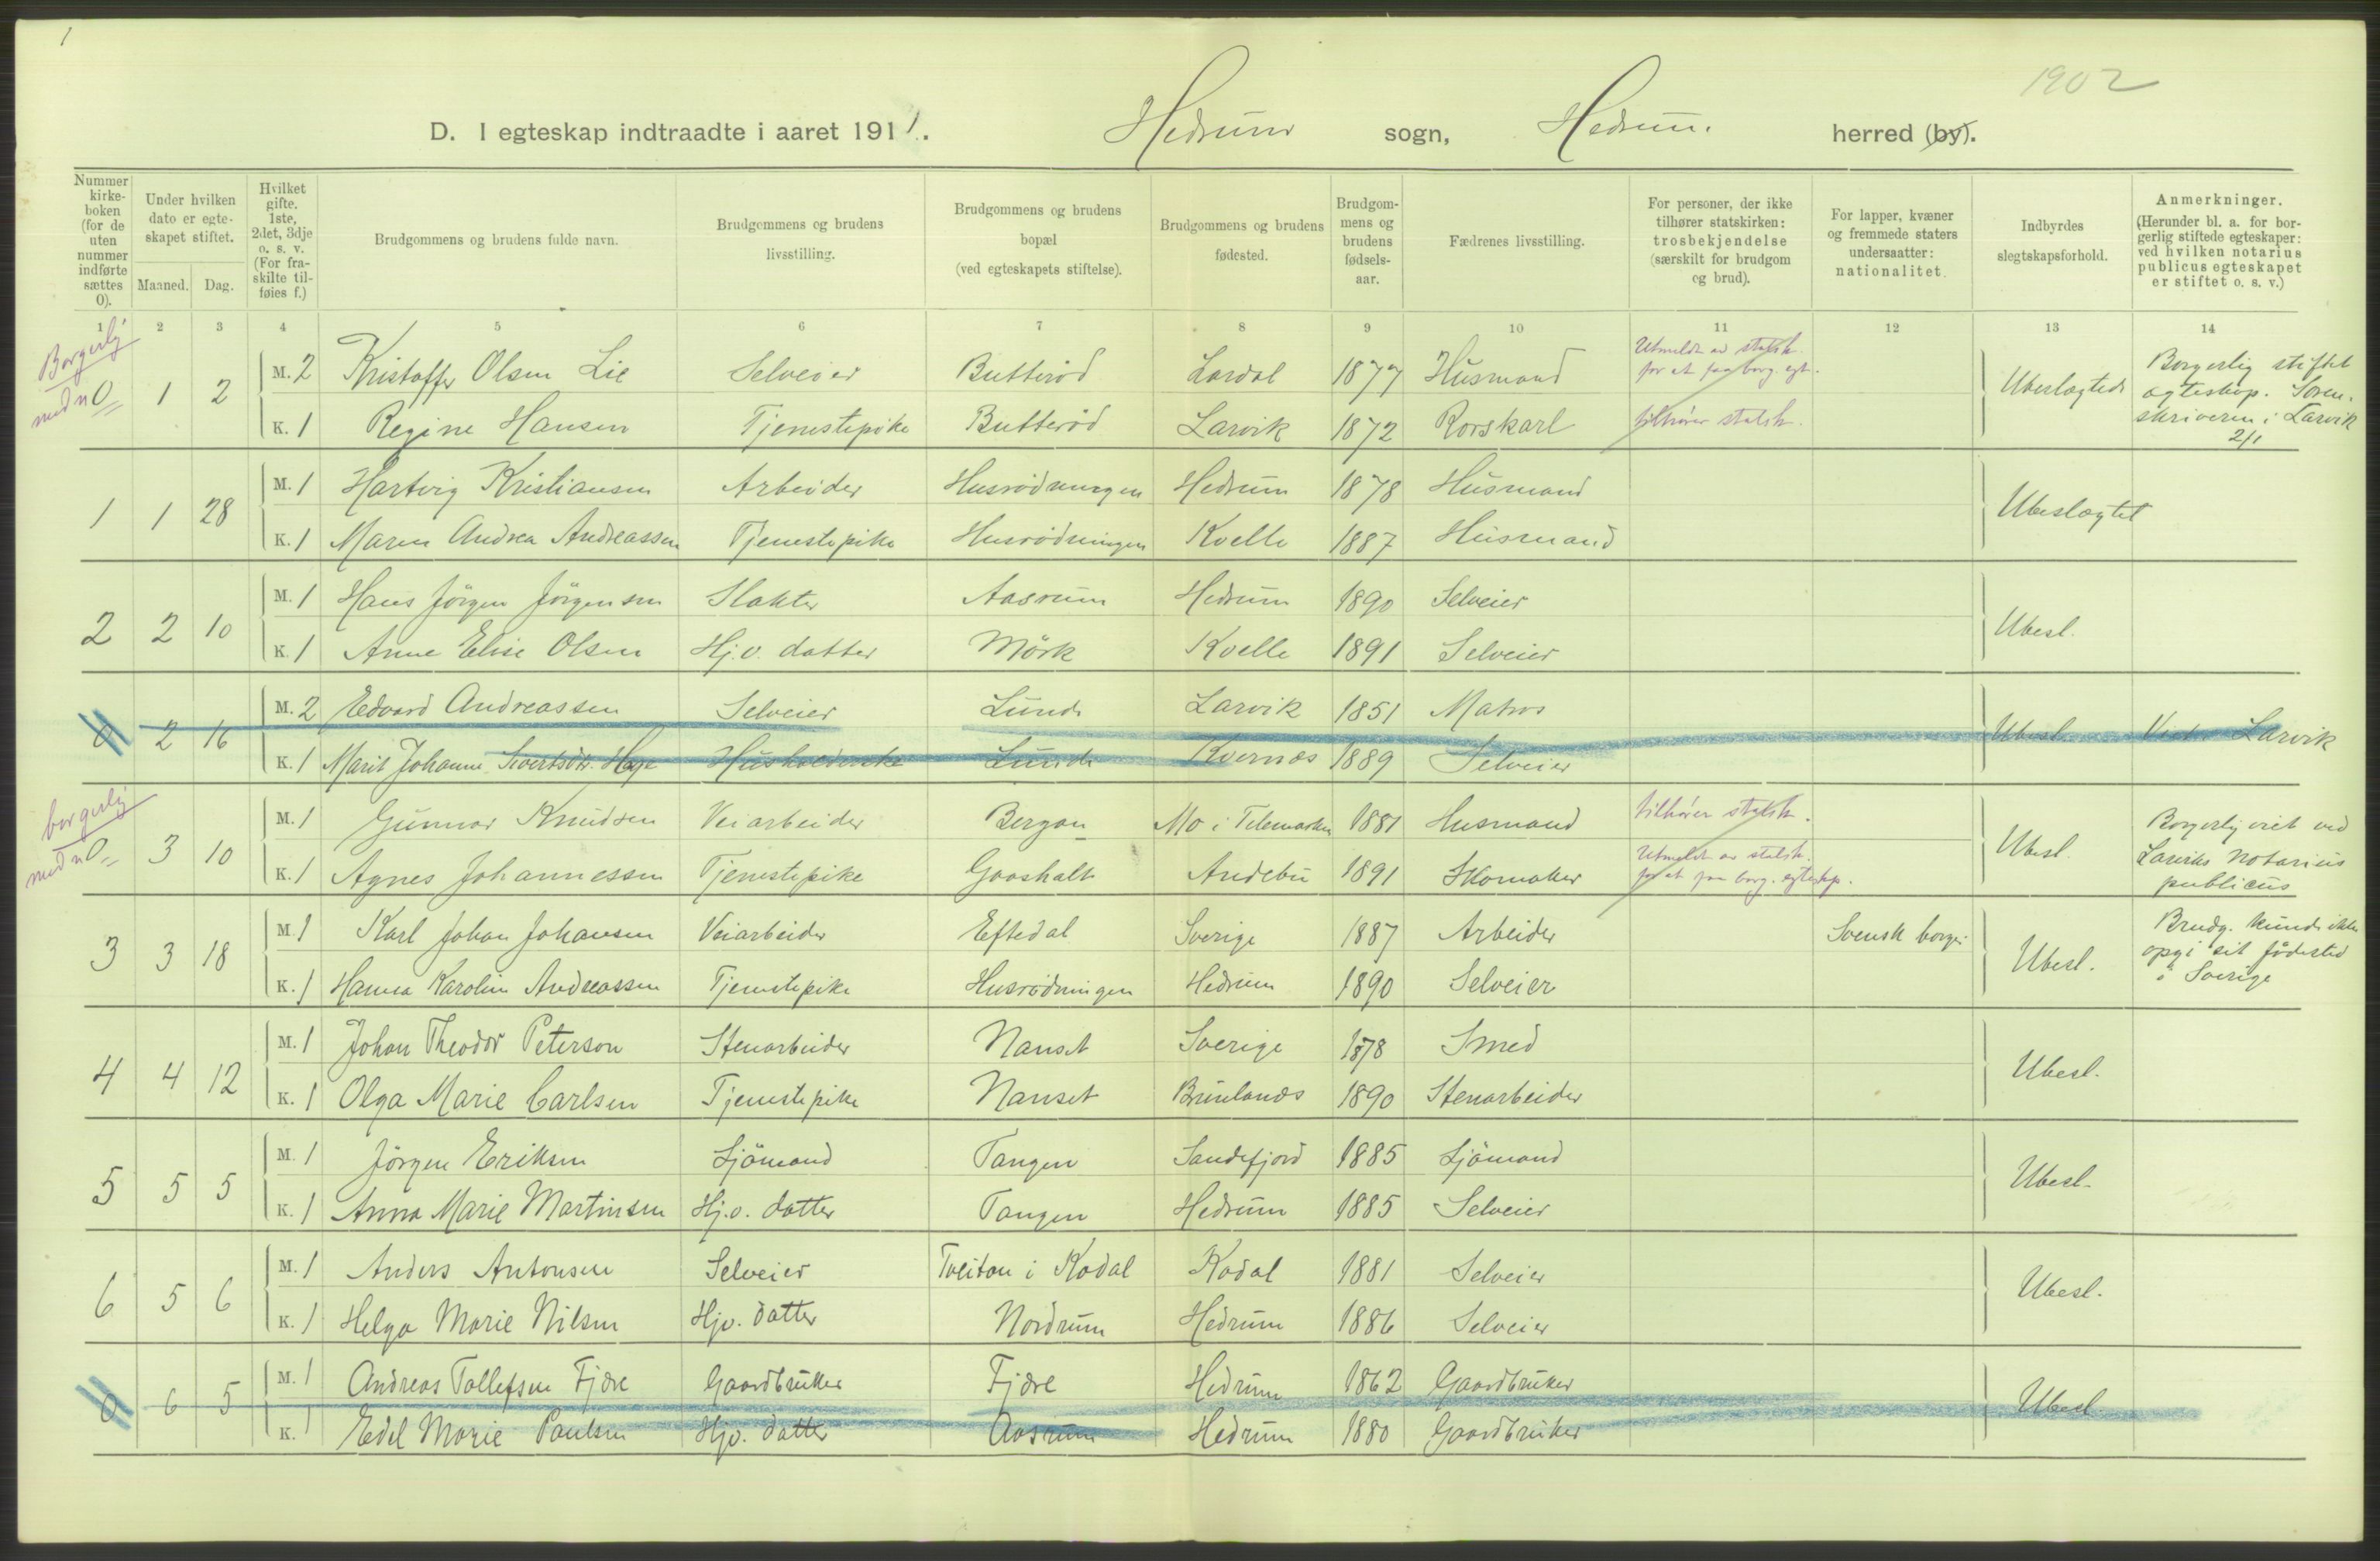 1
1902
D. I egteskap indtraadte i aaret 1911. Hedrum sogn, Hedrum. herred (by).
Nummer kirkeboken (for de uten nummer indførte sættes 0).
Under hvilken dato er egteskapet stiftet.
Maaned. Dag.
Hvilket gifte. 1ste, 2det, 3dje o. s. v. (For fraskilte tilføies f.)
Brudgommens og brudens fulde navn.
Brudgommens og brudens livsstilling.
Brudgommens og brudens bopæl (ved egteskapets stiftelse).
Brudgommens og brudens fødested.
Brudgommens og brudens fødselsaar.
Fædrenes livsstilling.
For personer, der ikke tilhører statskirken: trosbekjendelse (særskilt for brudgom og brud).
For lapper, kvæner og fremmede staters undersaatter: nationalitet.
Indbyrdes slegtskapsforhold.
Anmerkninger. (Herunder bl. a. for borgerlig stiftede egteskaper: ved hvilken notarius publicus egteskapet er stiftet o. s. v.)
1 2 3 4 5 6 7 8 9 10 11 12 13 14
Borgerlig
med n 0 1 2
M. 2 Kristoffer Olsen Lie Selveier Butterød Lardal 1877 Husmand Utmeldt av statsk. for at faa borg. egt.
K. 1 Regine Hansen Tjenestepike Butterød Larvik 1872 Rorskarl tilhører statsk.
Ubeslægtede Borgerlig stiftet egteskap. Sorenskriveren i Larvik 2/1
1 1 28
M. 1 Hartvig Kristiansen Arbeider Husrødningen Hedrum 1878 Husmand
K. 1 Maren Andrea Andreassen Tjenestepike Husrødningen Kvelle 1887 Husmand
Ubeslægtet
2 2 10
M. 1 Hans Jörgen Jörgensen Slakter Aasrum Hedrum 1890 Selveier
K. 1 Anne Elise Olsen Hj.v. datter Mörk Kvelle 1891 Selveier
Ubesl.
0 2 16
M. 2 Edvard Andreassen Selveier Lunde Larvik 1851 Matros
K. 1 Marit Johanne Sivertsdtr. Husholderske Lunde Kvernes 1889 Selveier
Ubesl. Larvik
borgerlig
med n 0 3 10
M. 1 Gunnar Knudsen Veiarbeider Bergan Mo i Telemarken 1881 Husmand tilhører statsk.
K. 1 Agnes Johannessen Tjenestepike Gaasholt Andebu 1891 Skomaker Utmeldt av statsk. for at faa borg. egteskap.
Ubesl. Borgerlig viet ved Larviks notarius publicus
3 3 18
M. 1 Karl Johan Johansen Veiarbeider Eftedal Sverige 1887 Arbeider Svensk borger
K. 1 Hanna Karoline Andreassen Tjenestepike Husrødningen Hedrum 1890 Selveier
Ubesl. Brudg. kunde ikke opgi sit fødested i Sverige
4 4 12
M. 1 Johan Theodor Peterson Stenarbeider Nanset Sverige 1878 Smed
K. 1 Olga Marie Carlsen Tjenestepike Nanset Brunlanes 1890 Stenarbeider
Ubesl.
5 5 5
M. 1 Jörgen Eriksen Sjömand Tangen Sandefjord 1885 Sjömand
K. 1 Anna Marie Martinsen Hj.v. datter Tangen Hedrum 1885 Selveier
Ubesl.
6 5 6
M. 1 Anders Antonsen Selveier Tveitan i Kodal Kodal 1881 Selveier
K. 1 Helga Marie Nilsen Hjv. datter Nordrum Hedrum 1886 Selveier
Ubesl.
0 6 5
M. 1 Andreas Tollefsen Fjære Gaardbruker Fjære Hedrum 1862 Gaardbruker
K. 1 Edel Marie Paulsen Hjv. datter Aasrum Hedrum 1880 Gaardbruker
Ubesl.